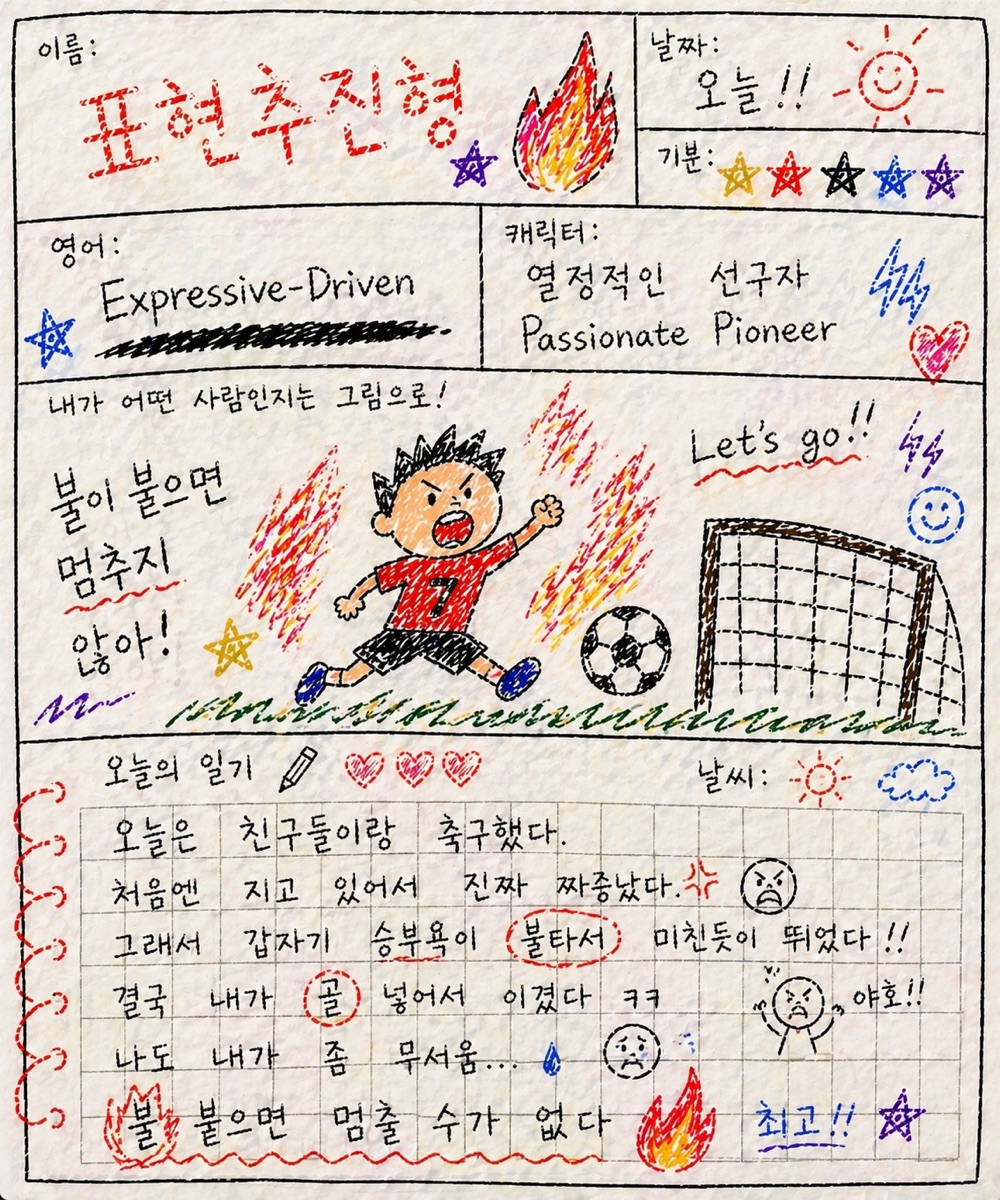 이름:
표현추진형
날짜:
오늘!!
기분:
영어:
Expressive-Driven
캐릭터:
열정적인 선구자
Passionate Pioneer
내가 어떤 사람인지는 그림으로!
불이 붙으면
멈추지
않아!
7
Let's go!!
오늘의 일기
날씨:
오늘은 친구들이랑 축구했다.
처음엔 지고 있어서 진짜 짜증났다.
그래서 갑자기 승부욕이 불타서 미친듯이 뛰었다!!
결국 내가 골 넣어서 이겼다 ㅋㅋ
야호!!
나도 내가 좀 무서움...
불 붙으면 멈출 수가 없다
최고!!